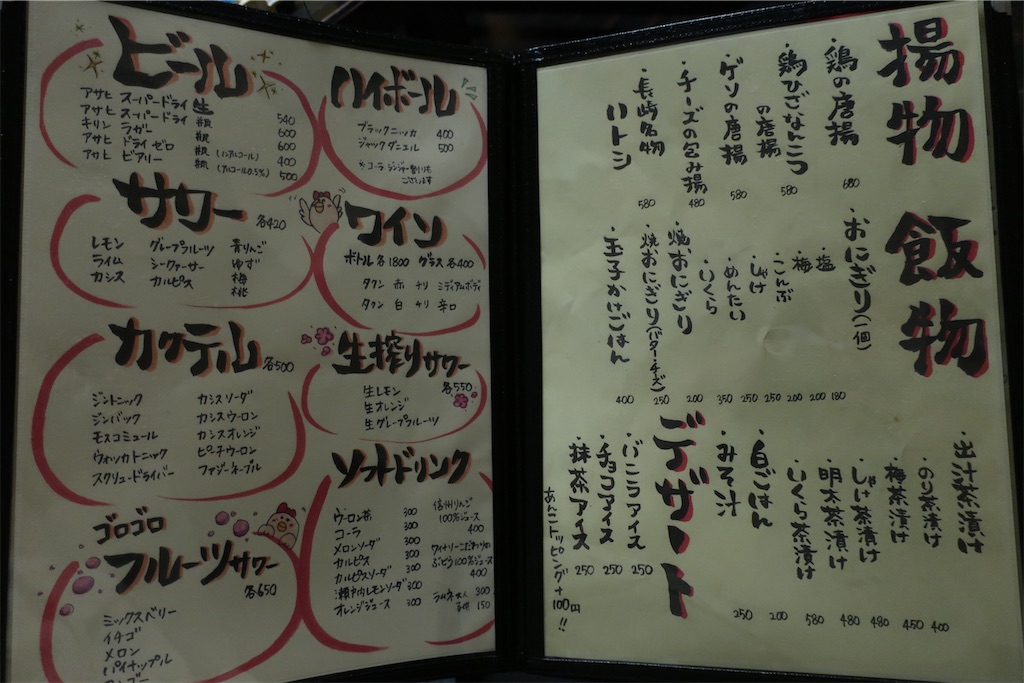 ビール
アサヒ スーパードライ 生 540
アサヒ スーパードライ 瓶 600
キリン ラガー 瓶 600
アサヒ ドライゼロ 瓶 (ノンアルコール) 400
アサヒ ビアリー 瓶 (アルコール0.5%) 500
サワー 各420
レモン グレープフルーツ 青りんご
ライム シークァーサー ゆず
カシス カルピス 梅
桃
カクテル 各500
ジントニック カシスソーダ
ジンバック カシスウーロン
モスコミュール カシスオレンジ
ウォッカトニック ピーチウーロン
スクリュードライバー ファジーネーブル
ゴロゴロ
フルーツサワー 各650
ミックスベリー
イチゴ
メロン
パイナップル
ハイボール
ブラックニッカ 400
ジャックダニエル 500
※コーラ ジンジャー割りも
ございます
ワイン
ボトル各1800 グラス各400
タワン 赤 チリ ミディアムボディ
タワン 白 チリ 辛口
生搾りサワー 各550
生レモン
生オレンジ
生グレープフルーツ
ソフトドリンク
ウーロン茶 300
コーラ 300
メロンソーダ 300
カルピス 300
カルピスソーダ 300
瀬戸内レモンソーダ 300
オレンジジュース 300
信州りんご
100%ジュース
400
ワイナリーこだわりの
ぶどう100%ジュース
400
ラムネ 大人 300
子供 150
揚物
・鶏の唐揚 680
・鶏ひざなんこつ
の唐揚 580
・ゲソの唐揚 580
・チーズの包み揚 480
・長崎名物
ハトシ 580
飯物
・おにぎり(一個)
・塩 180
・梅 200
・こんぶ 200
・しゃけ 250
・めんたい 250
・いくら 350
・焼おにぎり 200
・焼おにぎり(バター・チーズ) 250
・玉子かけごはん 400
・出汁茶漬け 400
・のり茶漬け 450
・梅茶漬け 480
・しゃけ茶漬け 480
・明太茶漬け 480
・いくら茶漬け 580
・白ごはん 200
・みそ汁 250
デザート
・バニラアイス 250
・チョコアイス 250
・抹茶アイス 250
あんこトッピング+100円!!